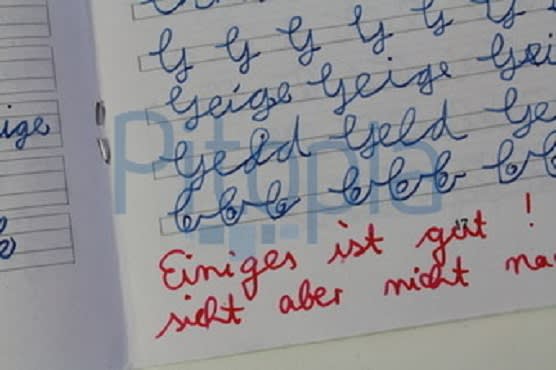 ige
G G G G G G G
Geige Geige Gei
Geld Geld Ge
bbb bbb bb
Einiges ist gut !
sieht aber nicht na
Pitopia